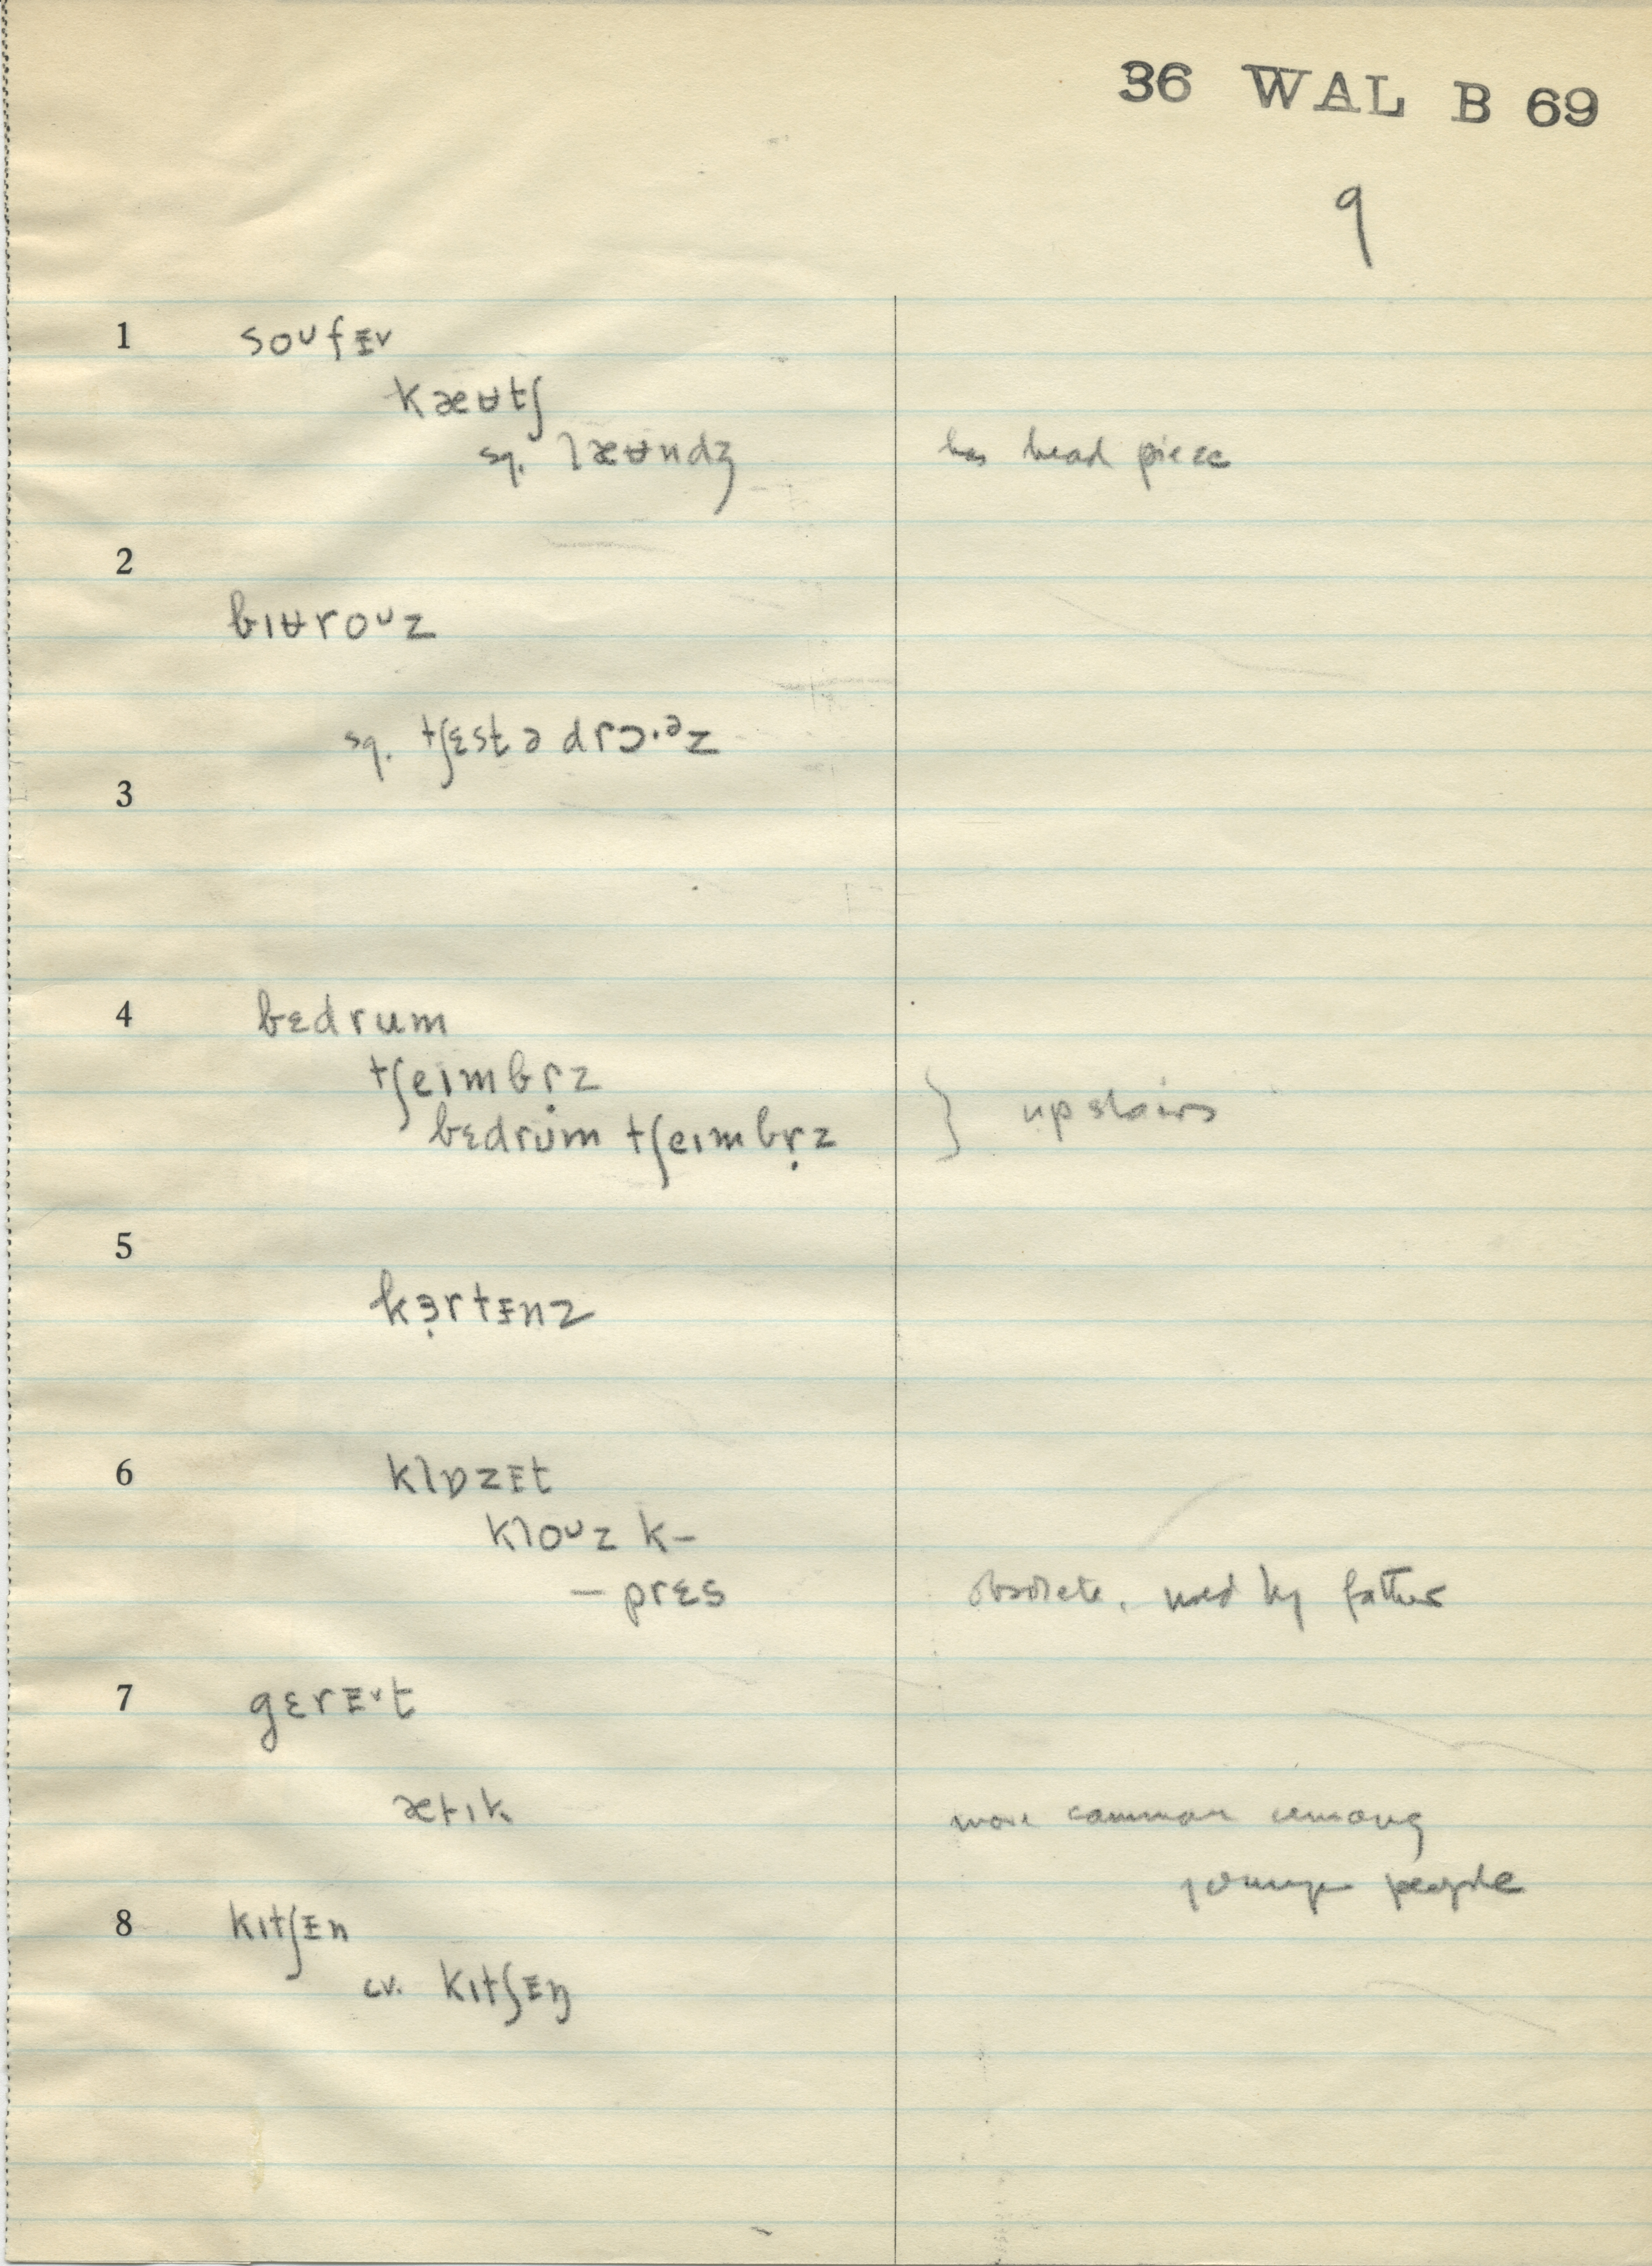 36 WAL B 69
9
1 soᴜfɪ̵v
kæʉtʃ
sq. læʉndʒ has head piece
2
bɪʉroᴜz
sq. tʃɛst ə drɔ·ᵊz
3
4 bɛdrum
tʃeɪmbr̩z
bɛdrum tʃeɪmbr̩z } upstairs
5
kɜ̣rtɪ̵nz
6 klɒzɪ̵t
kloᴜz k–
– prɛs obsolete, used by father
7 gɛrɪ̵ᵛt
ætɪk more common among
younger people
8 kɪtʃɪ̵n
cv. kɪtʃɪ̵ŋ